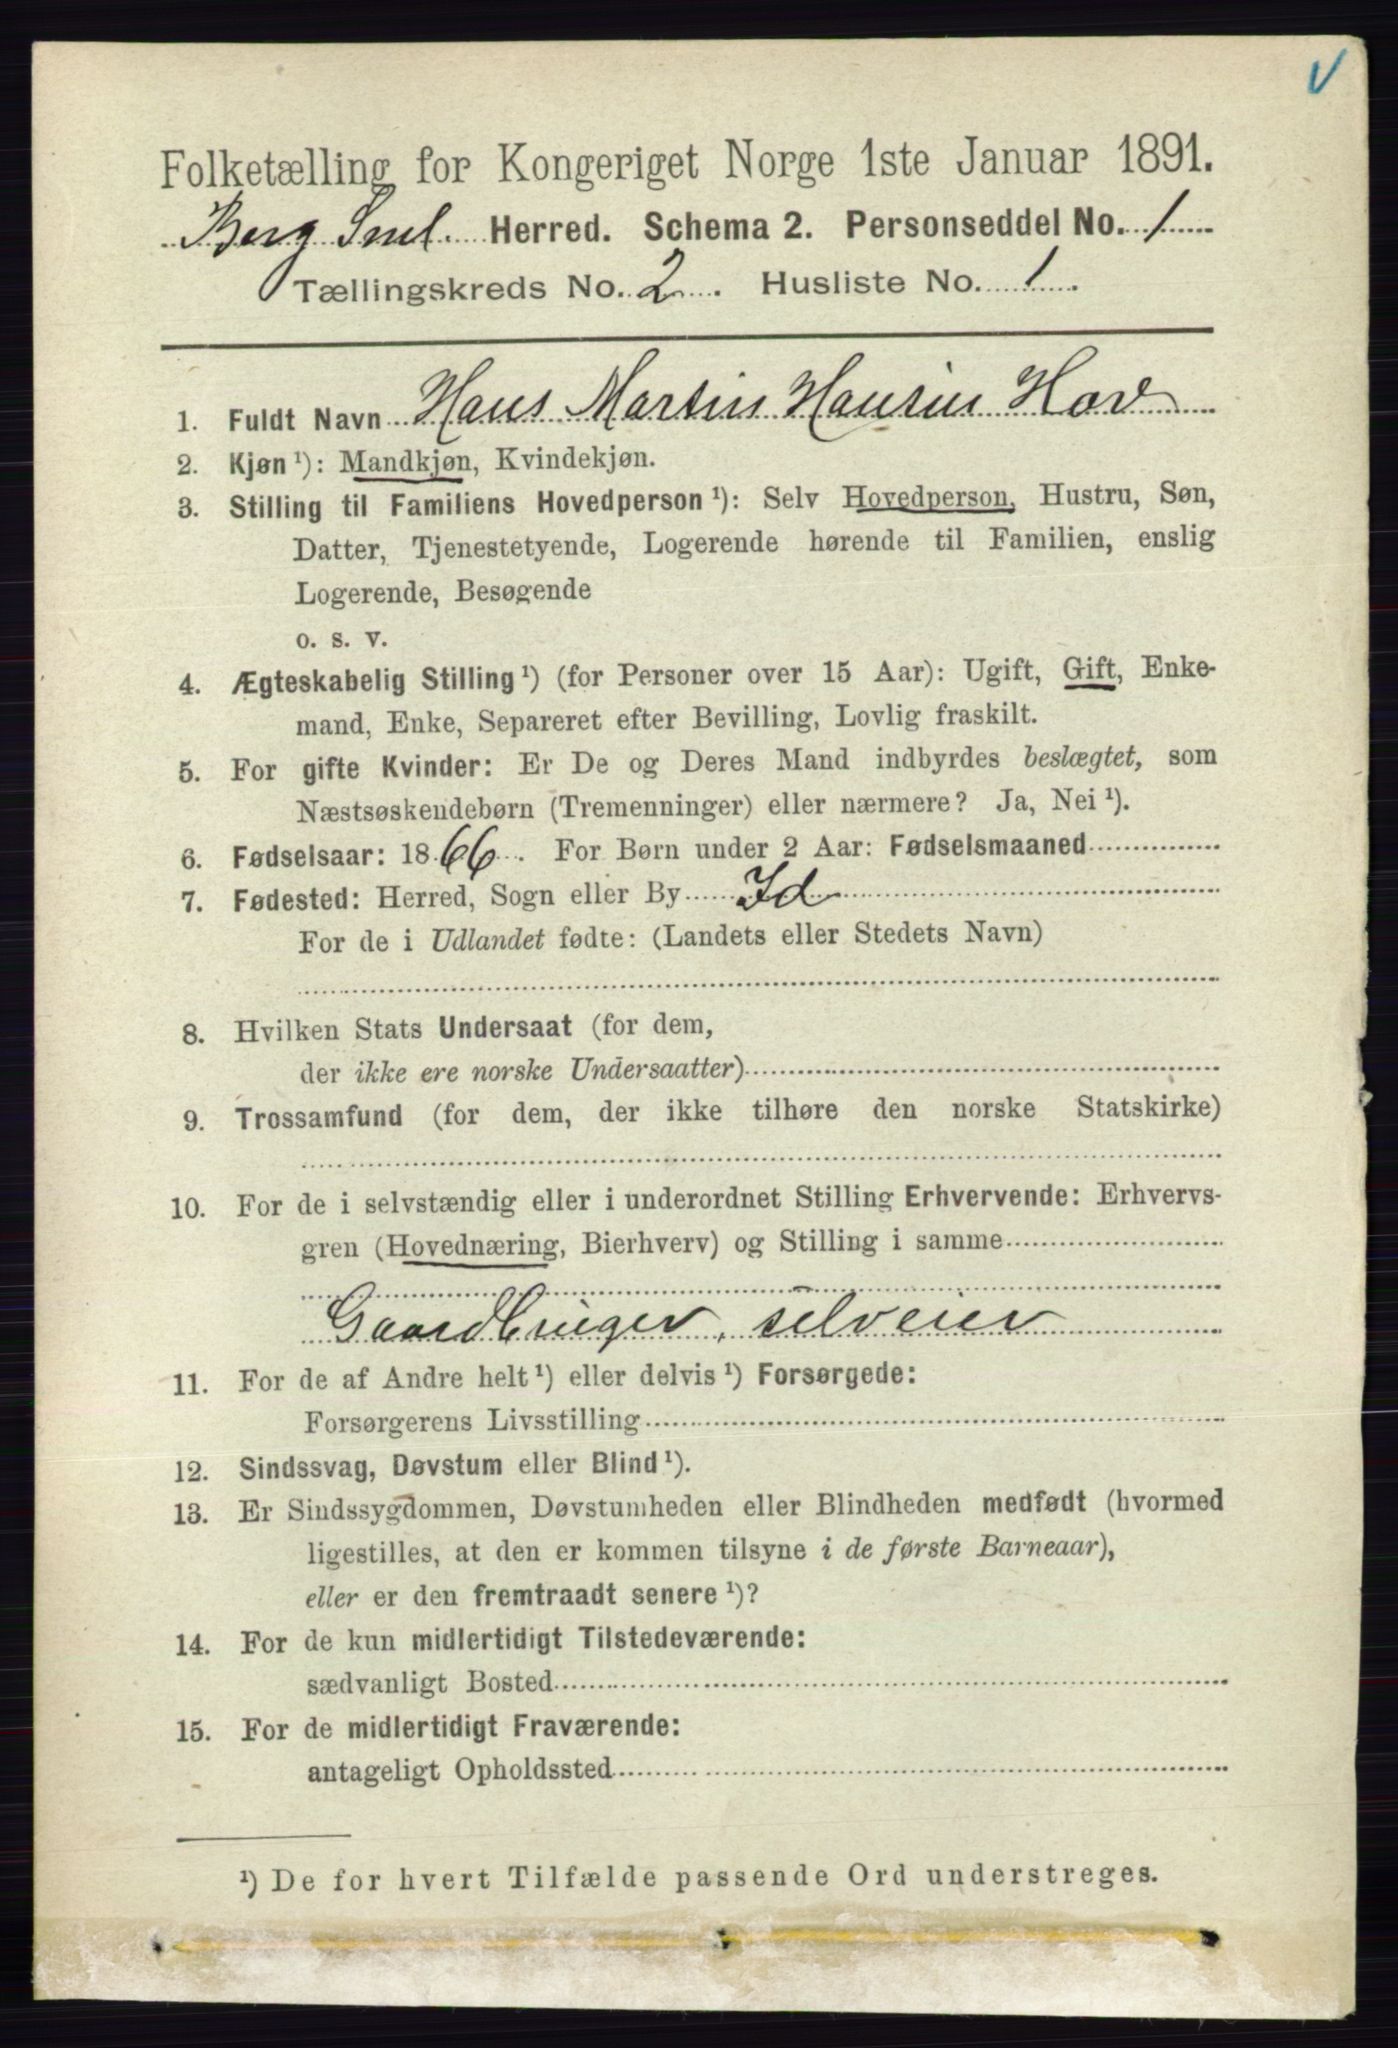 V
Folketælling for Kongeriget Norge 1ste Januar 1891.
Berg Sml. Herred. Schema 2. Personseddel No. 1
Tællingskreds No. 2. Husliste No. 1.
1. Fuldt Navn Hans Martin Hansen Hov
2. Kjøn ¹): Mandkjøn, Kvindekjøn.
3. Stilling til Familiens Hovedperson ¹): Selv Hovedperson, Hustru, Søn,
Datter, Tjenestetyende, Logerende hørende til Familien, enslig
Logerende, Besøgende
o. s. v.
4. Ægteskabelig Stilling ¹) (for Personer over 15 Aar): Ugift, Gift, Enke-
mand, Enke, Separeret efter Bevilling, Lovlig fraskilt.
5. For gifte Kvinder: Er De og Deres Mand indbyrdes beslægtet, som
Næstsøskendebørn (Tremenninger) eller nærmere? Ja, Nei ¹).
6. Fødselsaar: 1866. For Børn under 2 Aar: Fødselsmaaned
7. Fødested: Herred, Sogn eller By Id
For de i Udlandet fødte: (Landets eller Stedets Navn)
8. Hvilken Stats Undersaat (for dem,
der ikke ere norske Undersaatter)
9. Trossamfund (for dem, der ikke tilhøre den norske Statskirke)
10. For de i selvstændig eller i underordnet Stilling Erhvervende: Erhvervs-
gren (Hovednæring, Bierhverv) og Stilling i samme
Gaardbruger, selveier
11. For de af Andre helt ¹) eller delvis ¹) Forsørgede:
Forsørgerens Livsstilling
12. Sindssvag, Døvstum eller Blind ¹).
13. Er Sindssygdommen, Døvstumheden eller Blindheden medfødt (hvormed
ligestilles, at den er kommen tilsyne i de første Barneaar),
eller er den fremtraadt senere ¹)?
14. For de kun midlertidigt Tilstedeværende:
sædvanligt Bosted
15. For de midlertidigt Fraværende:
antageligt Opholdssted
¹) De for hvert Tilfælde passende Ord understreges.